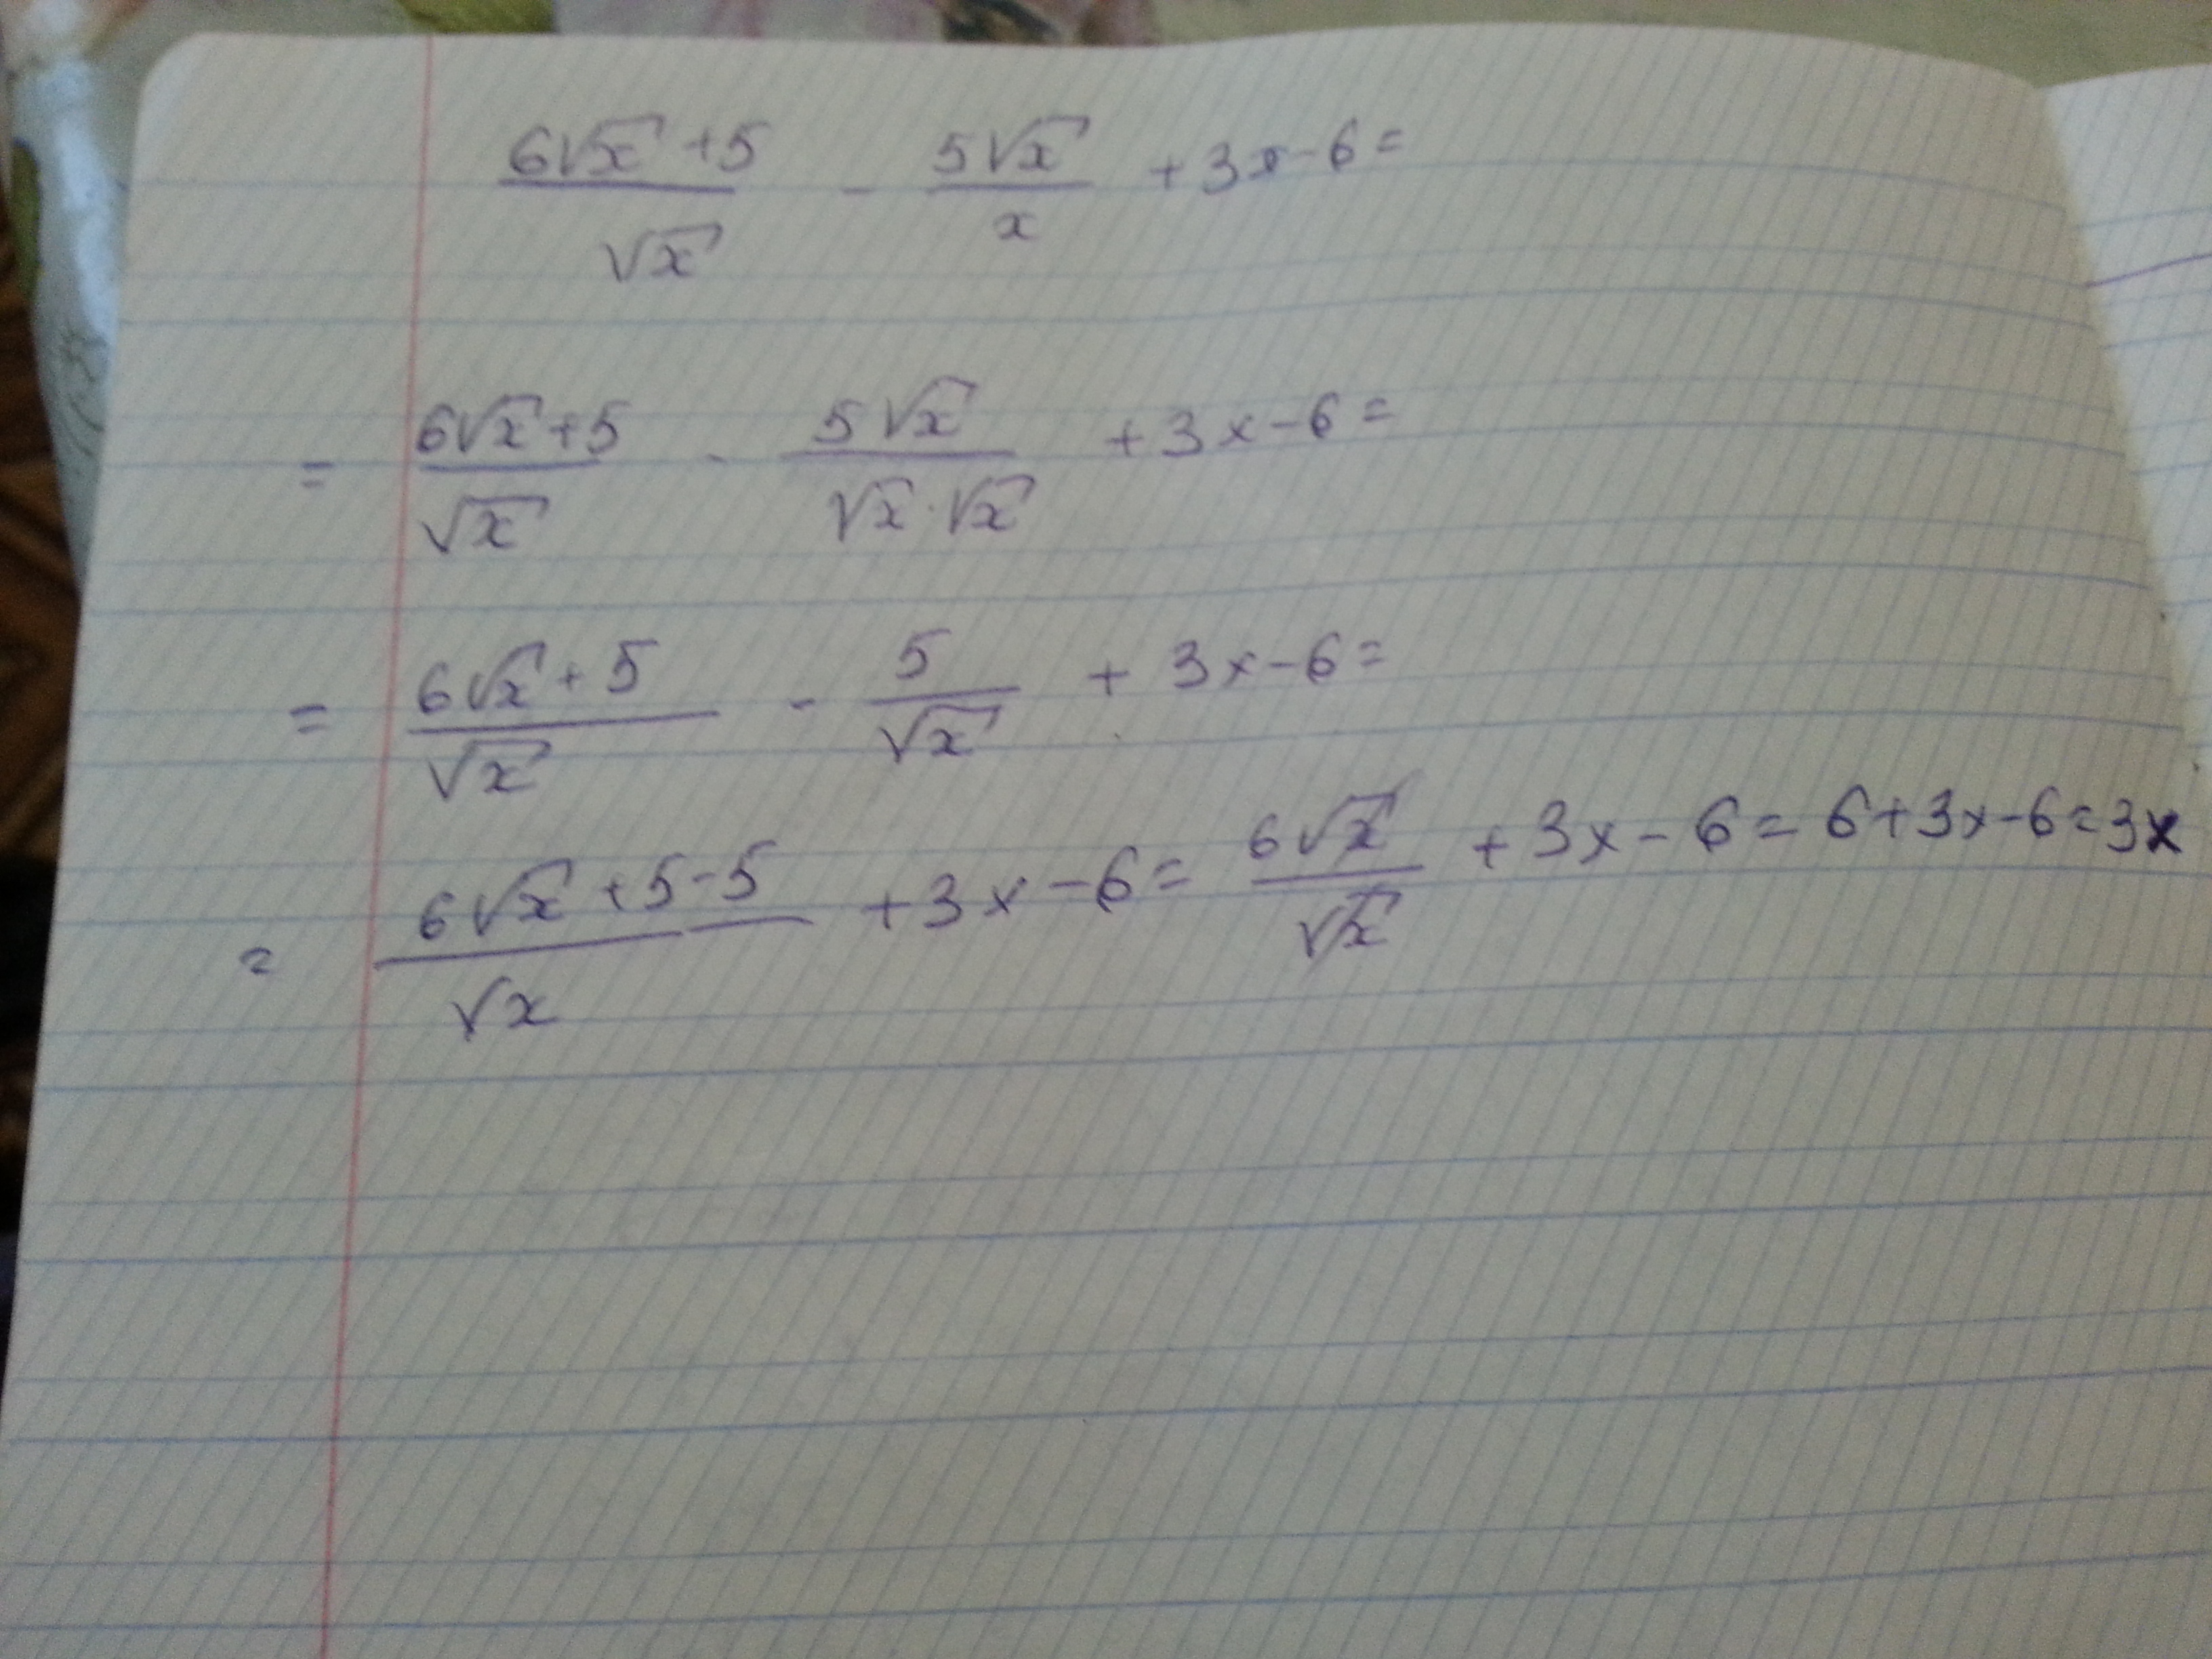 (6√x + 5)/√x - 5√x/x + 3x - 6 =
= (6√x + 5)/√x - 5√x/(√x · √x) + 3x - 6 =
= (6√x + 5)/√x - 5/√x + 3x - 6 =
= (6√x + 5 - 5)/√x + 3x - 6 = 6√x/√x + 3x - 6 = 6 + 3x - 6 = 3x